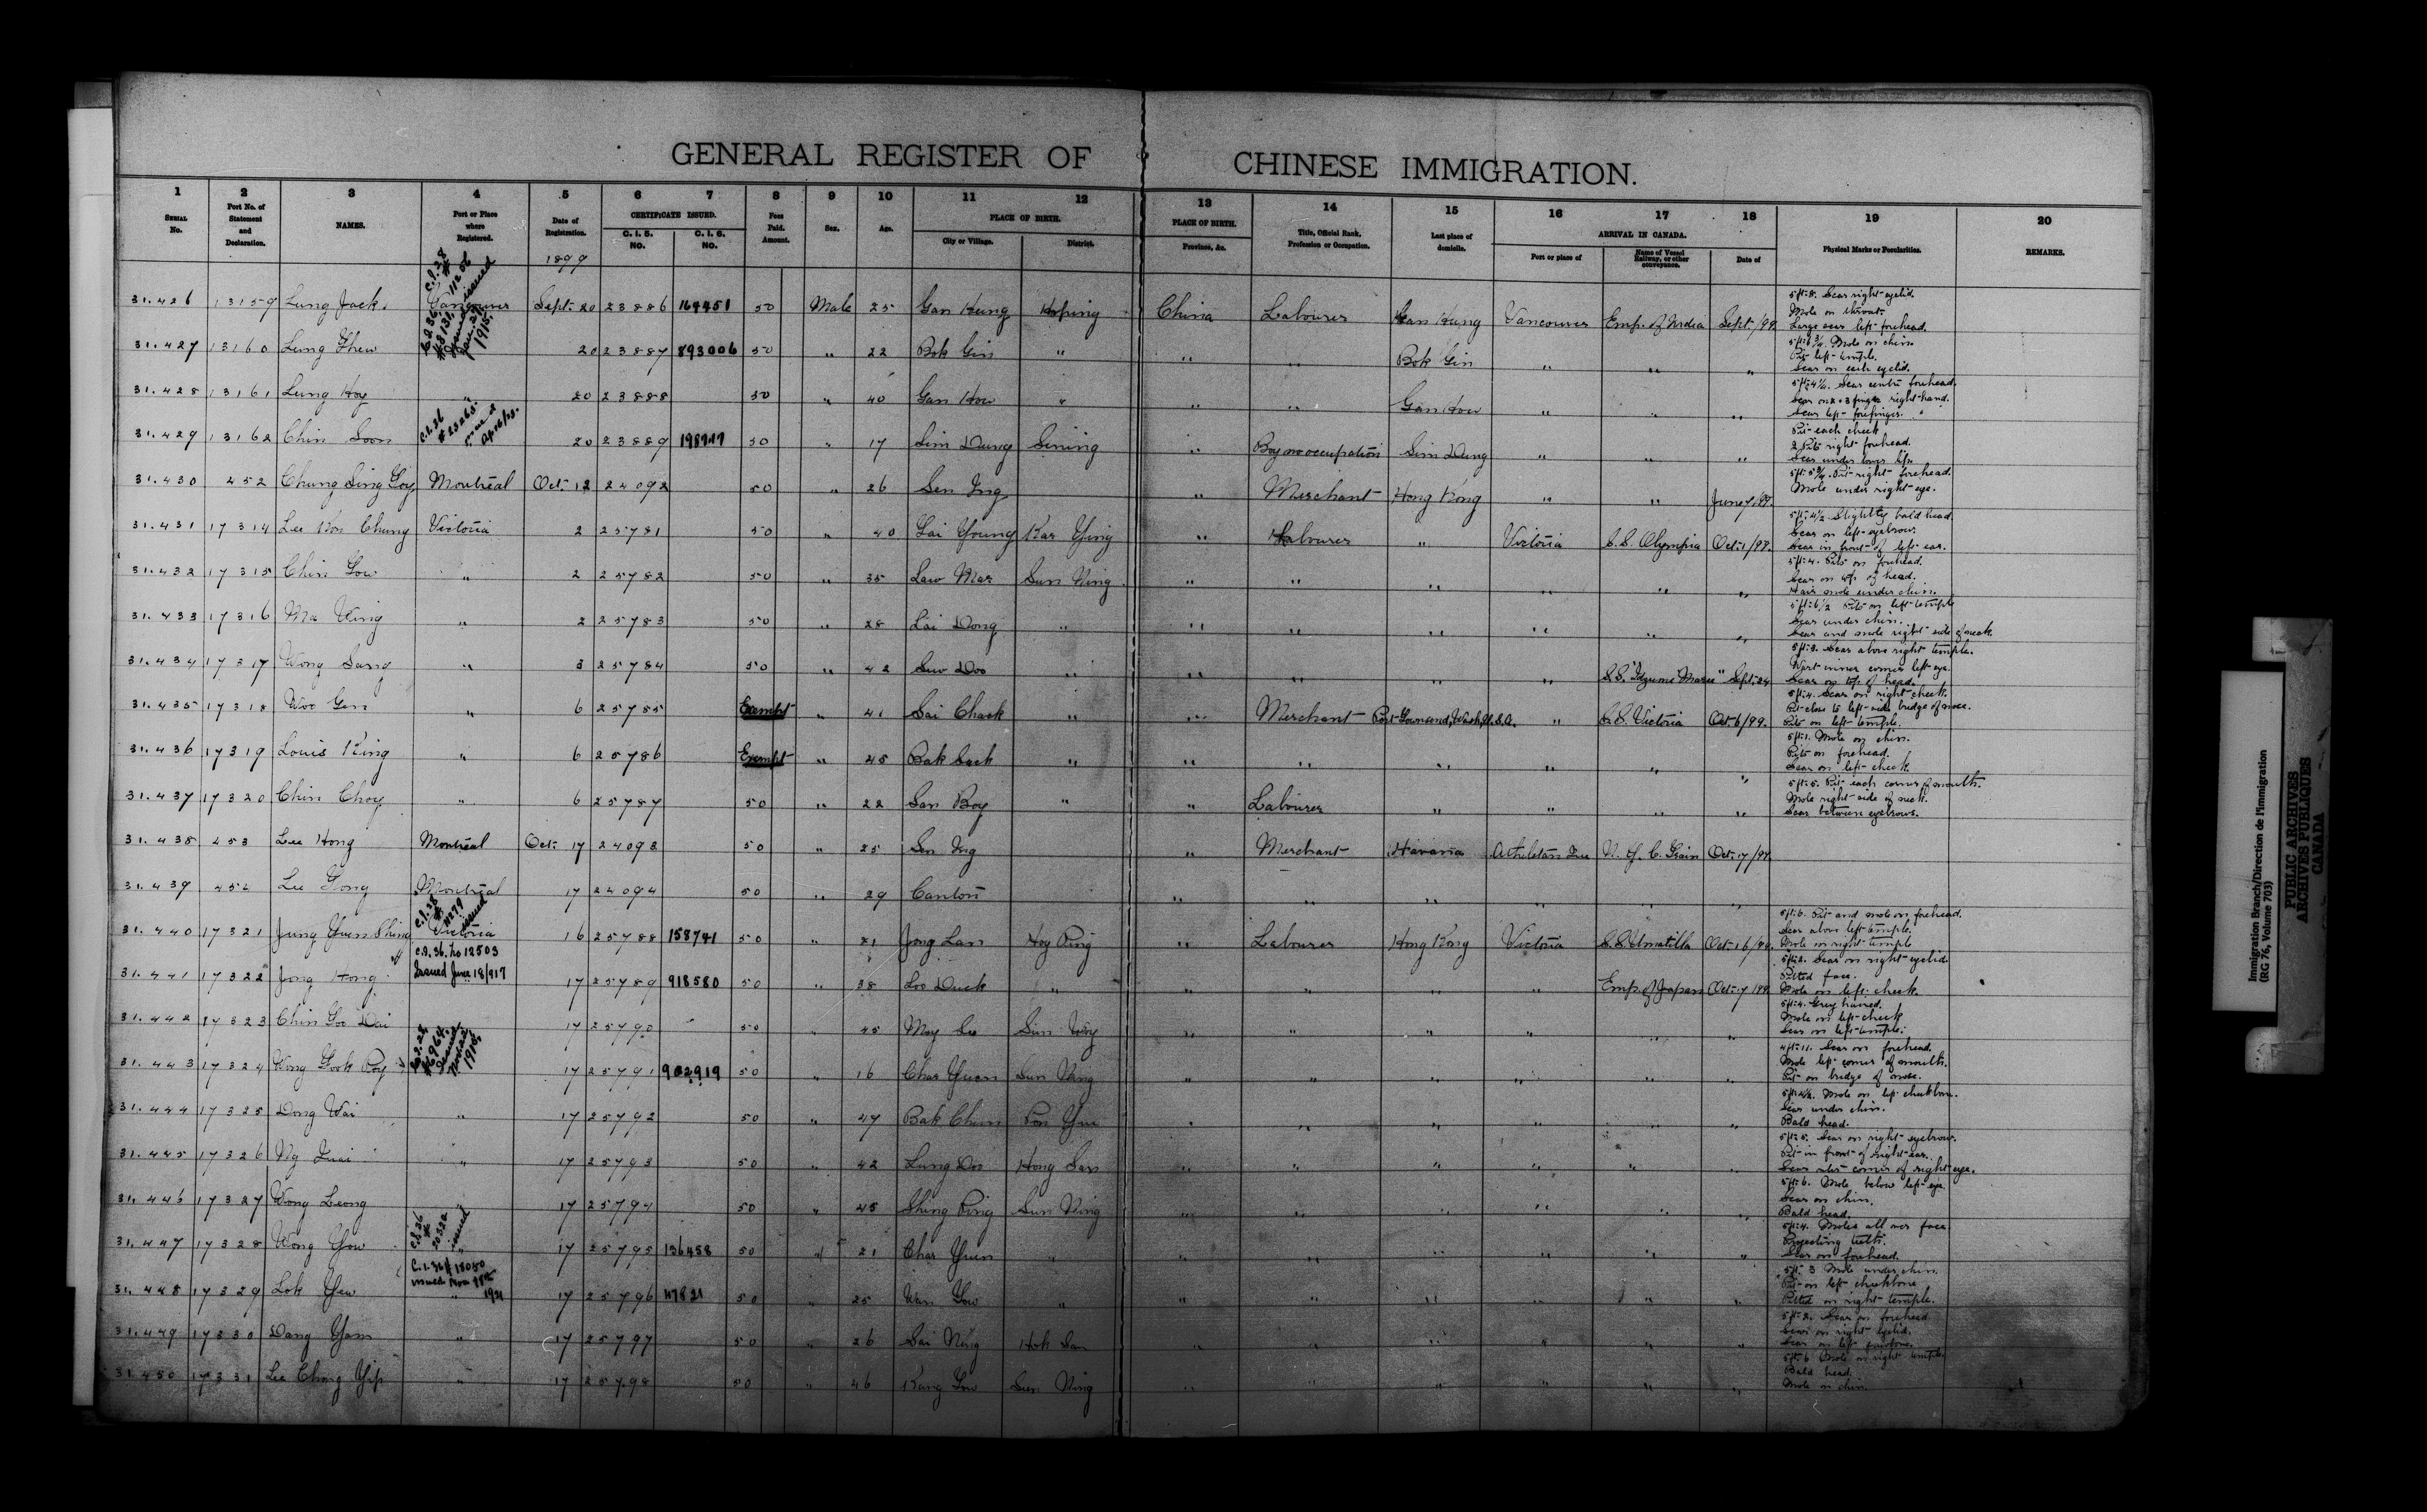 GENERAL REGISTER OF CHINESE IMMIGRATION.
1 2 3 4 5 6 7 8 9 10 11 12 13 14 15 16 17 18 19 20
SERIAL No. Port No. of Statement and Declaration. NAMES. Port or Place where Registered. Date of Registration. CERTIFICATE ISSUED. C. I. 5. No. C. I. 6. No. Fees Paid. Amount. Sex. Age. PLACE OF BIRTH. City or Village. District. PLACE OF BIRTH. Province, &c. Title, Official Rank, Profession or Occupation. Last place of domicile. ARRIVAL IN CANADA. Port or place of Name of Vessel Railway, or other conveyance. Date of Physical Marks or Peculiarities. REMARKS.
1899
31.426 13159 Lung Jack. Vancouver Sept. 20 23886 164451 50 Male 25 Gan Hung Hoping China Labourer Gan Hung Vancouver Emp. of India Sept /99 5 ft. 8. Scar right eyelid. Mole on throat. Large scar left forehead.
31.427 13160 Lung 20 23887 893006 50 " 22 Bok Gin " " " Bok Gin " " " Mole on chin. Pit left temple. Scar on each eyelid.
31.428 13161 Lung Hoy " 20 23888 50 " 40 Gan How " " " Gan How " " " 5 ft. 4½. Scar centre forehead. Scar on 2 & 3 finger right hand. Scar left forefinger.
31.429 13162 Chin Soon 20 23889 50 " 17 Sim Dung Sining " Boy no occupation Sim Dung " " " Pit each cheek 2 Pits right forehead. Scar under lower lip.
31.430 452 Chung Sing Goy Montreal Oct. 12 24092 50 " 26 Sen Ing " Merchant Hong Kong " " June 7/99. 5 ft. 5¾. Pit right forehead. Mole under right eye.
31.431 17314 Lee Kon Chung Victoria 2 25781 50 " 40 Lai Young Kar Ying " Labourer " Victoria S.S. Olympia Oct. 1/99. 5 ft. 4½ Slightly bald head. Scar on left eyebrow. Scar in front of left ear.
31.432 17315 Chin Gow " 2 25782 50 " 35 Law Mar Sun Ning " " " " " " 5 ft. 4. Pits on forehead. Scar on top of head. Hair mole under chin.
31.433 17316 Ma Wing " 2 25783 50 " 28 Lai Dong " " " " " " " 5 ft. 6½ Pits on left temple Scar under chin. Scar and mole right side of neck.
31.434 17317 Wong Sang " 3 25784 50 " 42 Suw Doo " " " " " S.S. "Idzumi Maru" Sept. 24 Scar above right temple. Wart inner corner left eye. Scar on top of head.
31.435 17318 Woo Gen " 6 25785 Exempt " 41 Sai Chack " " Merchant Port Townsend, Wash, U.S.A. " S.S. Victoria Oct 6/99. 5 ft. 4. Scar on right cheek. Pit close to left side bridge of nose. Pits on left temple.
31.436 17319 Louis King " 6 25786 Exempt " 45 Bak Sack " " " " " " " 5 ft. 1. Mole on chin. Pits on forehead. Scar on left cheek.
31.437 17320 Chin Choy " 6 25787 50 " 22 San Boy " " Labourer " " " " 5 ft. 5. Pit each corner of mouth. Mole right side of neck. Scar between eyebrows.
31.438 453 Lee Hong Montreal Oct. 17 24093 50 " 25 Sen Ing " Merchant Havana Oct. 17/99.
31.439 454 Lee Montreal 17 24094 50 " 29 Canton " " " " " "
31.440 17321 Jung Yuen Shing Victoria 16 25788 158741 50 " 21 Jong Lan Hoy Ping " Labourer Hong Kong Victoria S.S. Umatilla Oct. 16/99. 5 ft. 6. Pit and mole on forehead. Scar above left temple. Mole on right temple
C.I. 36. No 12503 Issued June 18/917
31.441 17322 Jong Hong " 17 25789 918580 50 " 38 Loo Duck " " " " " Emp. of Japan Oct. 7 /99 5 ft. 2. Scar on right eyelid Pitted face. Mole on left cheek.
31.442 17323 Chin Goo Dai 17 25790 50 " 45 May Lee Sun Woy " " " " " " 5 ft. 4. Grey haired. Mole on left cheek Scar on left temple.
31.443 17324 Wong Gook Poy 17 25791 902919 50 " 16 Char Yuen Sun Ning " " " " " " 4 ft. 11. Scar on forehead. Mole left corner of mouth. Pit on bridge of nose.
31.444 17325 Dong Wai " 17 25792 50 " 47 Bak Chun Pon Yu " " " " " " Mole on left cheekbone. Scar under chin. Bald head.
31.445 17326 Ng " 17 25793 50 " 42 Lung Doo Hong San " " " " " " 5 ft. 5. Scar on right eyebrow. Pit in front of right ear. Scar outer corner of right eye.
31.446 17327 Wong Leong " 17 25794 50 " 45 Shing Ping Sun Ning " " " " " " 5 ft. 6. Mole below left eye. Scar on chin. Bald head.
31.447 17328 Wong Yow " 17 25795 136458 50 " 21 Char Yuen " " " " " " " 5 ft. 4. Moles all over face Projecting teeth. Scar on forehead.
C.I. 36 # 18050 issued Nov 1921
31.448 17329 Lok Yew " 17 25796 50 " 25 Wan Gow " " " " " " " 5 ft. 3 Mole under chin. Pit on left cheekbone Pitted on right temple.
31.449 17330 Dang Yam " 17 25797 50 " 26 Sai Ning Hok San " " " " " " 5 ft. 2. Scar on forehead Scar on right eyelid.
31.450 17331 Lee Chong Yip " 17 25798 50 " 46 Kong Gow Sun Ning " " " " " " 5 ft. 6 Mole on right temple. Bald head. Mole on chin.
Immigration Branch/Direction de l'immigration
(RG 76, Volume 703)
PUBLIC ARCHIVES
ARCHIVES PUBLIQUES
CANADA